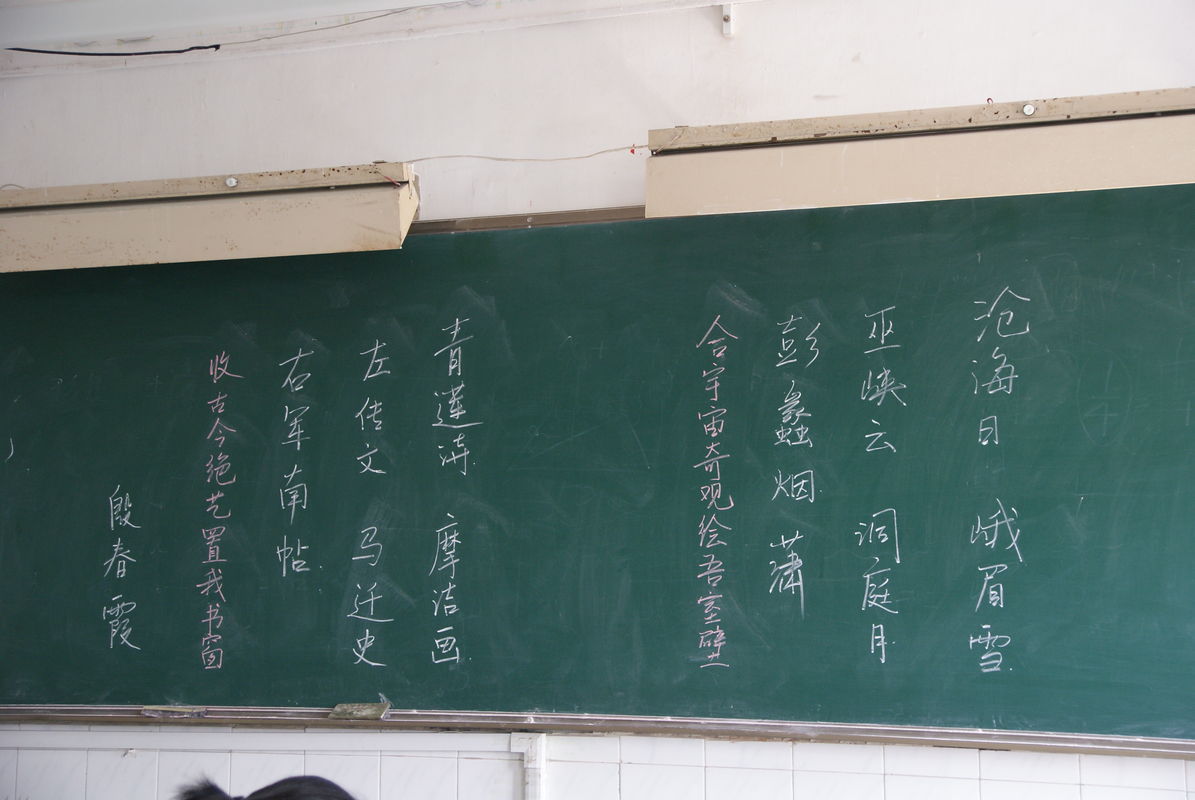 沧海日 峨眉雪.
巫峡云 洞庭月.
彭蠡烟. 潇
合宇宙奇观绘吾室壁
青莲诗. 摩诘画.
左传文 马迁史
右军南帖.
收古今绝艺置我书窗
殷春霞